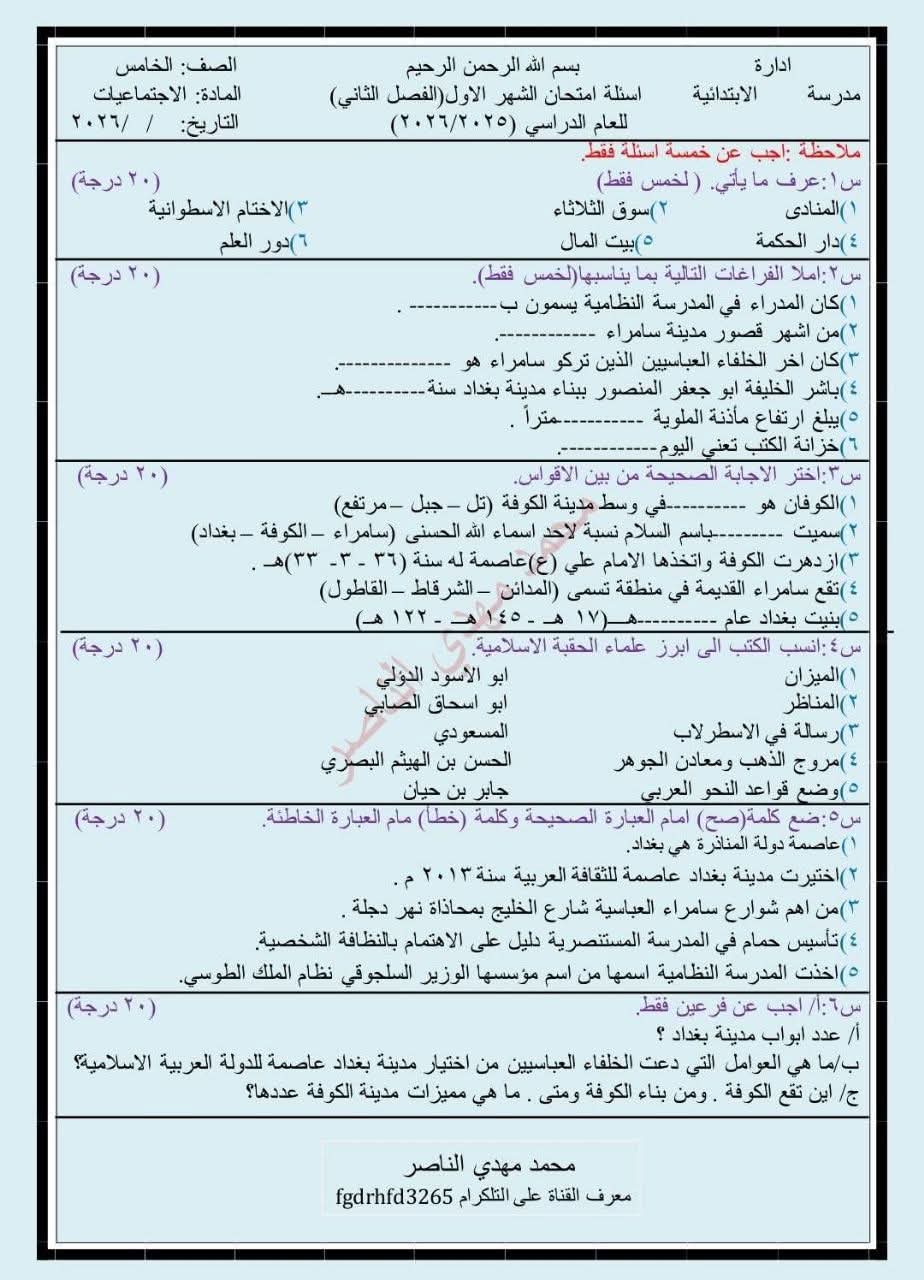 ادارة بسم الله الرحمن الرحيم الصف: الخامس
مدرسة الابتدائية اسئلة امتحان الشهر الاول(الفصل الثاني) المادة: الاجتماعيات
للعام الدراسي (٢٠٢٦/٢٠٢٥) التاريخ: / /٢٠٢٦
ملاحظة :اجب عن خمسة اسئلة فقط.
س١:عرف ما يأتي. ( لخمس فقط) (٢٠ درجة)
١)المنادى ٢)سوق الثلاثاء ٣)الاختام الاسطوانية
٤)دار الحكمة ٥)بيت المال ٦)دور العلم
س٢:املا الفراغات التالية بما يناسبها(لخمس فقط). (٢٠ درجة)
١)كان المدراء في المدرسة النظامية يسمون ب----------- .
٢)من اشهر قصور مدينة سامراء ------------.
٣)كان اخر الخلفاء العباسيين الذين تركو سامراء هو --------------.
٤)باشر الخليفة ابو جعفر المنصور ببناء مدينة بغداد سنة----------هـ.
٥)يبلغ ارتفاع مأذنة الملوية -----------متراً .
٦)خزانة الكتب تعني اليوم------------.
س٣:اختر الاجابة الصحيحة من بين الاقواس. (٢٠ درجة)
١)الكوفان هو ----------في وسط مدينة الكوفة (تل – جبل – مرتفع)
٢)سميت ---------باسم السلام نسبة لاحد اسماء الله الحسنى (سامراء – الكوفة – بغداد)
٣)ازدهرت الكوفة واتخذها الامام علي (ع)عاصمة له سنة (٣٦ - ٣- ٣٣)هـ .
٤)تقع سامراء القديمة في منطقة تسمى (المدائن – الشرقاط – القاطول)
٥)بنيت بغداد عام ----------هـ(١٧ هـ - ١٤٥ هـ - ١٢٢ هـ)
س٤:انسب الكتب الى ابرز علماء الحقبة الاسلامية. (٢٠ درجة)
١)الميزان ابو الاسود الدؤلي
٢)المناظر ابو اسحاق الصابي
٣)رسالة في الاسطرلاب المسعودي
٤)مروج الذهب ومعادن الجوهر الحسن بن الهيثم البصري
٥)وضع قواعد النحو العربي جابر بن حيان
س٥:ضع كلمة(صح) امام العبارة الصحيحة وكلمة (خطأ) مام العبارة الخاطئة. (٢٠ درجة)
١)عاصمة دولة المناذرة هي بغداد.
٢)اختيرت مدينة بغداد عاصمة للثقافة العربية سنة ٢٠١٣ م .
٣)من اهم شوارع سامراء العباسية شارع الخليج بمحاذاة نهر دجلة .
٤)تأسيس حمام في المدرسة المستنصرية دليل على الاهتمام بالنظافة الشخصية.
٥)اخذت المدرسة النظامية اسمها من اسم مؤسسها الوزير السلجوقي نظام الملك الطوسي.
س٦:أ/ اجب عن فرعين فقط. (٢٠ درجة)
أ/ عدد ابواب مدينة بغداد ؟
ب/ما هي العوامل التي دعت الخلفاء العباسيين من اختيار مدينة بغداد عاصمة للدولة العربية الاسلامية؟
ج/ اين تقع الكوفة . ومن بناء الكوفة ومتى . ما هي مميزات مدينة الكوفة عددها؟
محمد مهدي الناصر
معرف القناة على التلكرام fgdrhfd3265
محمد مهدي الناصر